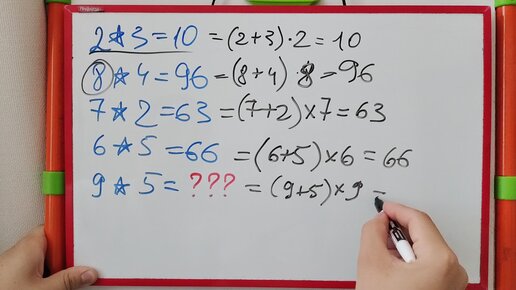 2☆3=10 =(2+3)·2=10
8☆4=96 =(8+4)·8=96
7☆2=63 =(7+2)×7=63
6☆5=66 =(6+5)×6=66
9☆5=??? =(9+5)×9=